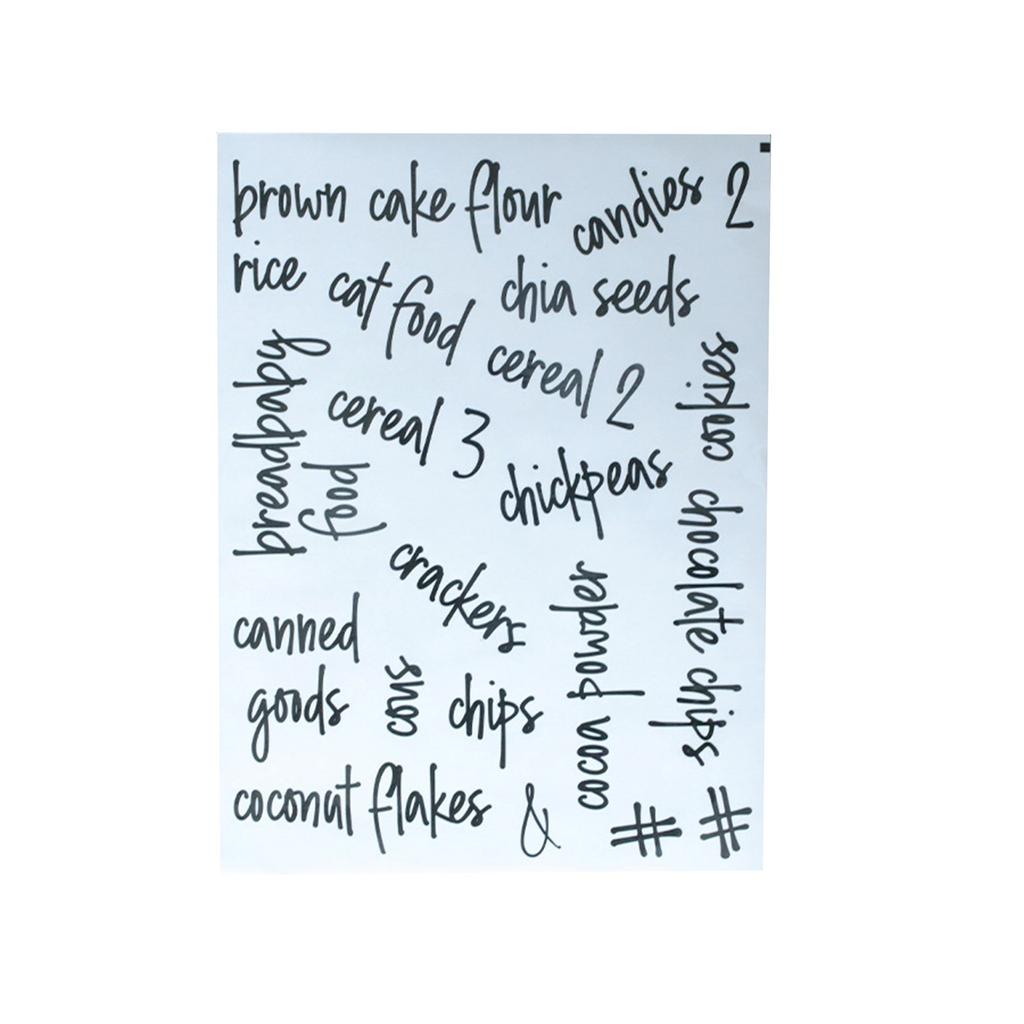 brown cake flour
candies 2
rice
cat food
chia seeds
cereal 2
cookies
bread
baby
food
cereal 3
chickpeas
crackers
chocolate chips
canned
goods
cous
chips
cocoa powder
coconut flakes
&
#
#